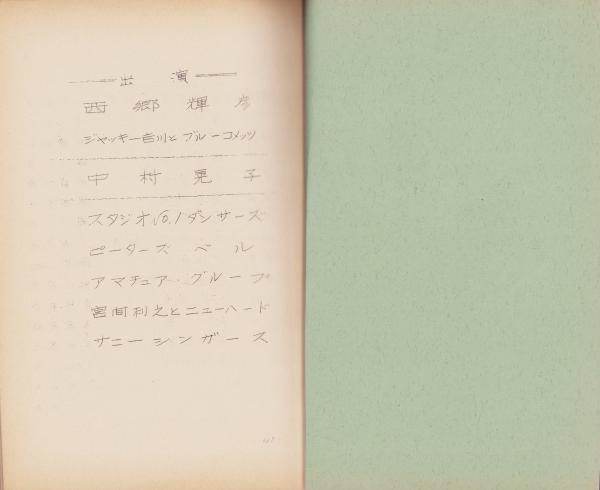 出演
西郷輝彦
ジャッキー吉川とブルーコメッツ
中村晃子
スタジオNo.1ダンサーズ
ピーターズベル
アマチュア・グループ
宮間利之とニューハード
サニーシンガース